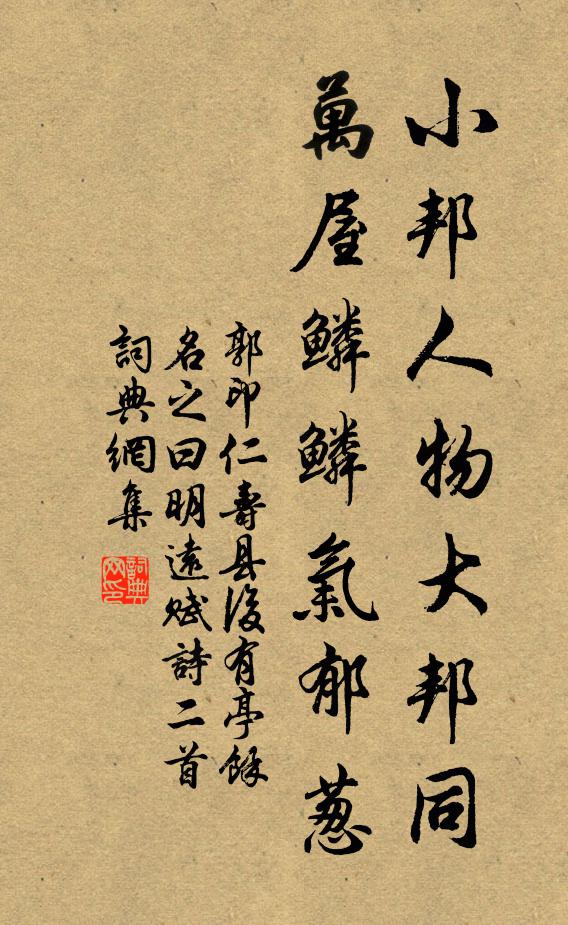 小邦人物大邦同
萬屋鱗鱗氣郁葱
郭印仁壽县後有亭餘
名之曰明遠賦詩二首
詞典網集
詞典網印